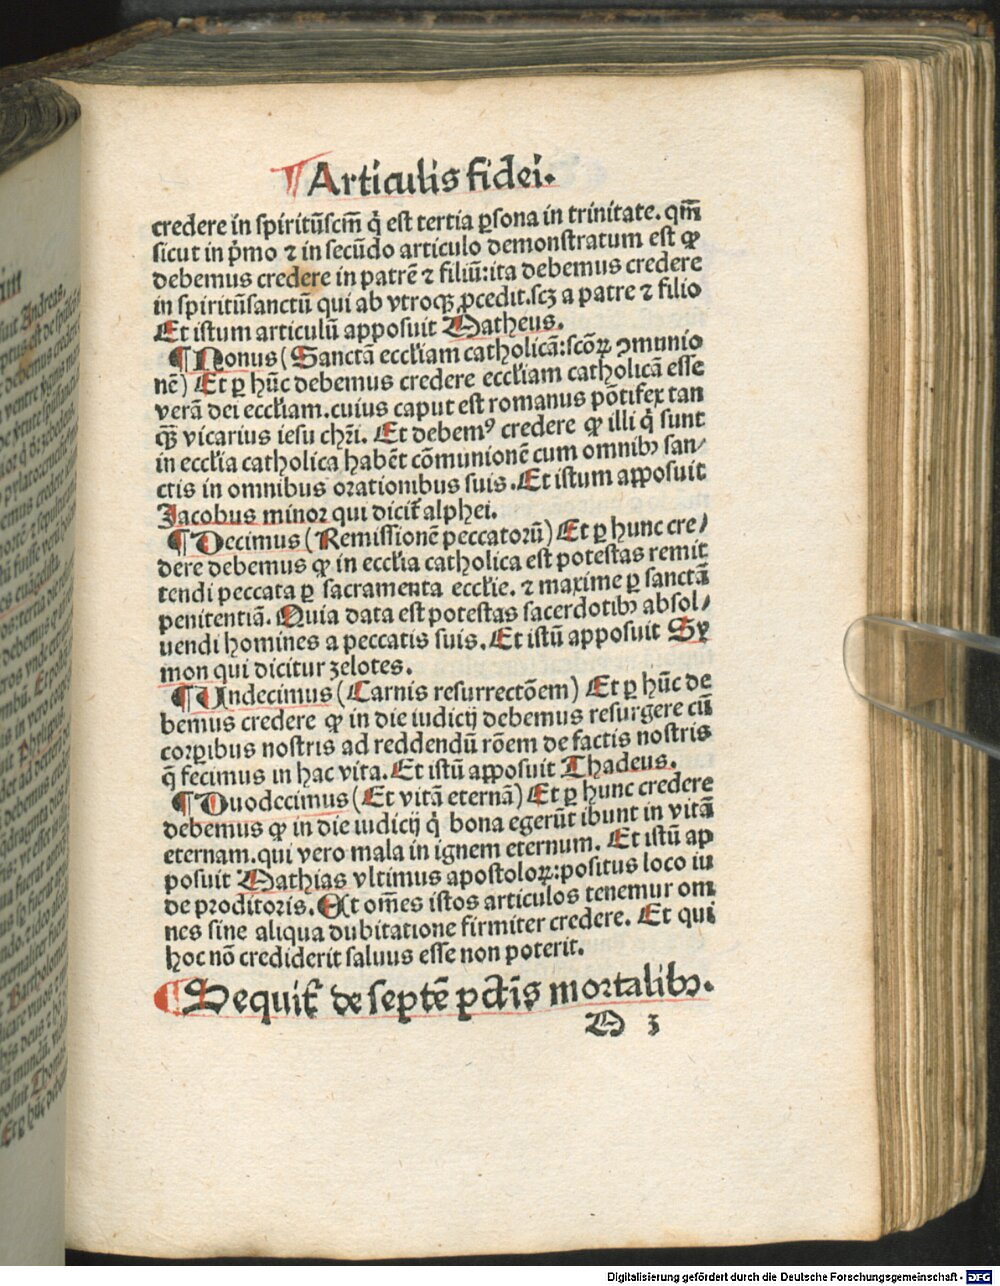 ¶ Articulis fidei.
credere in spiritūscm̄ q̇ est tertia ꝑsona in trinitate. qm̄
sicut in pͥmo ⁊ in secūdo articulo demonstratum est ꝙ
debemus credere in patrē ⁊ filiū: ita debemus credere
in spiritūsanctū qui ab vtroqꝫ ꝓcedit. scꝫ a patre ⁊ filio
Et istum articulū apposuit Matheus.
¶ Nonus (Sanctā eccłiam catholicā: scōꝝ ↄmunio
nē) Et ꝑ hūc debemus credere eccłiam catholicā esse
verā dei eccłiam. cuius caput est romanus pōtifex tan
qꝫ̄ vicarius iesu chr̄i. Et debemꝰ credere ꝙ illi q̇ sunt
in eccłia catholica habēt cōmunionē cum omnibꝫ san⸗
ctis in omnibus orationibus suis. Et istum apposuit
Jacobus minor qui dicit̄ alphei.
¶ Decimus (Remissionē peccatorū) Et ꝑ hunc cre⸗
dere debemus ꝙ in eccłia catholica est potestas remit
tendi peccata ꝑ sacramenta eccłie. ⁊ maxime ꝑ sanctā
penitentiā. Quia data est potestas sacerdotibꝫ absol⸗
uendi homines a peccatis suis. Et istū apposuit Sy
mon qui dicitur zelotes.
¶ Undecimus (Carnis resurrectōem) Et ꝑ hūc de
bemus credere ꝙ in die iudicij debemus resurgere cū
corꝑibus nostris ad reddendū rōem de factis nostris
q̄ fecimus in hac vita. Et istū apposuit Thadeus.
¶ Duodecimus (Et vitā eternā) Et ꝑ hunc credere
debemus ꝙ in die iudicij q̇ bona egerūt ibunt in vitā
eternam. qui vero mala in ignem eternum. Et istū ap
posuit Mathias vltimus apostoloꝝ: positus loco iu
de proditoris. Et om̄es istos articulos tenemur om
nes sine aliqua dubitatione firmiter credere. Et qui
hoc nō crediderit saluus esse non poterit.
¶ Sequit̄ de septē pctīs mortalibꝫ.
O 3
Digitalisierung gefördert durch die Deutsche Forschungsgemeinschaft - DFG